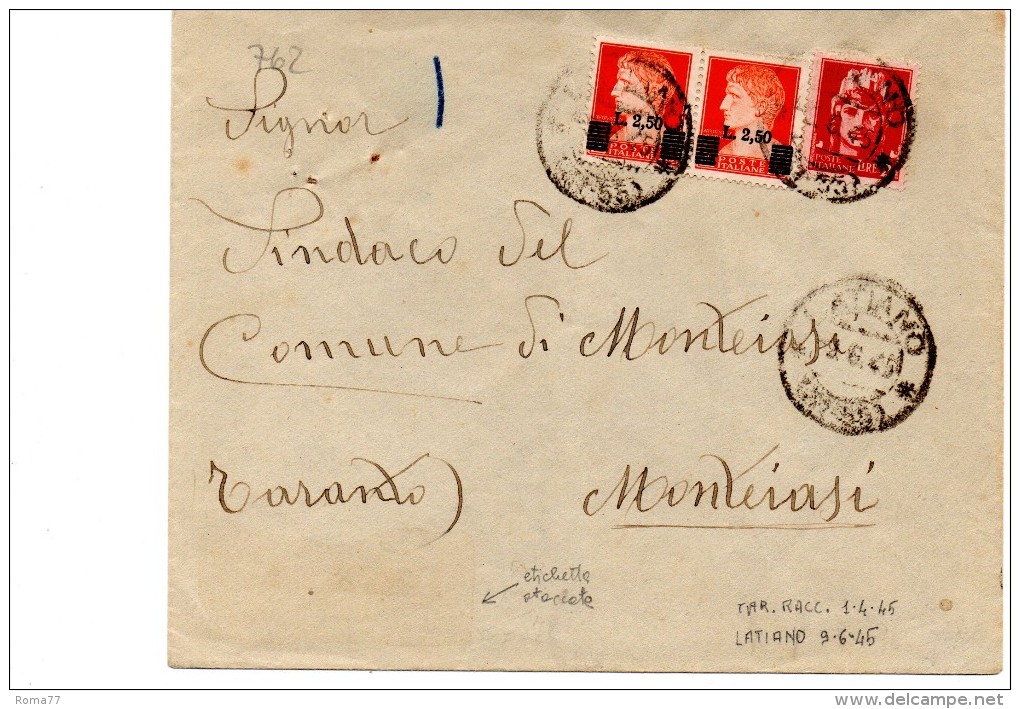 762
Signor
L. 2,50
POSTE
ITALIANE
L. 2,50
POSTE
ITALIANE
POSTE
ITALIANE
LIRE
Sindaco del
Comune di Monteiasi
LATIANO
9.6.45
Taranto)
Monteiasi
etichetta
staccata
TAR. RACC. 1.4.45
LATIANO 9.6.45
Roma77
www.delcampe.net